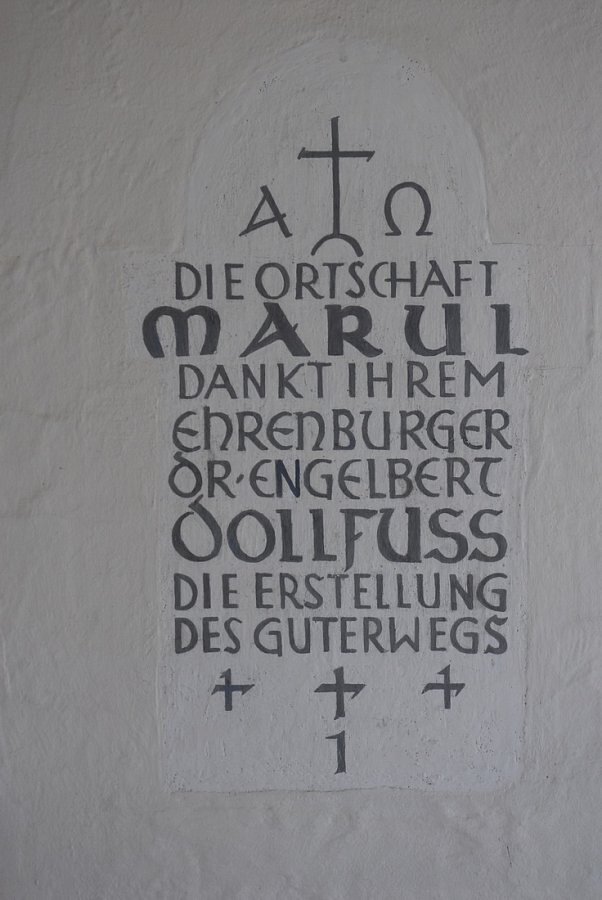 A Ω
DIE ORTSCHAFT
MARUL
DANKT IHREM
EHRENBURGER
DR·ENGELBERT
DOLLFUSS
DIE ERSTELLUNG
DES GUTERWEGS
1